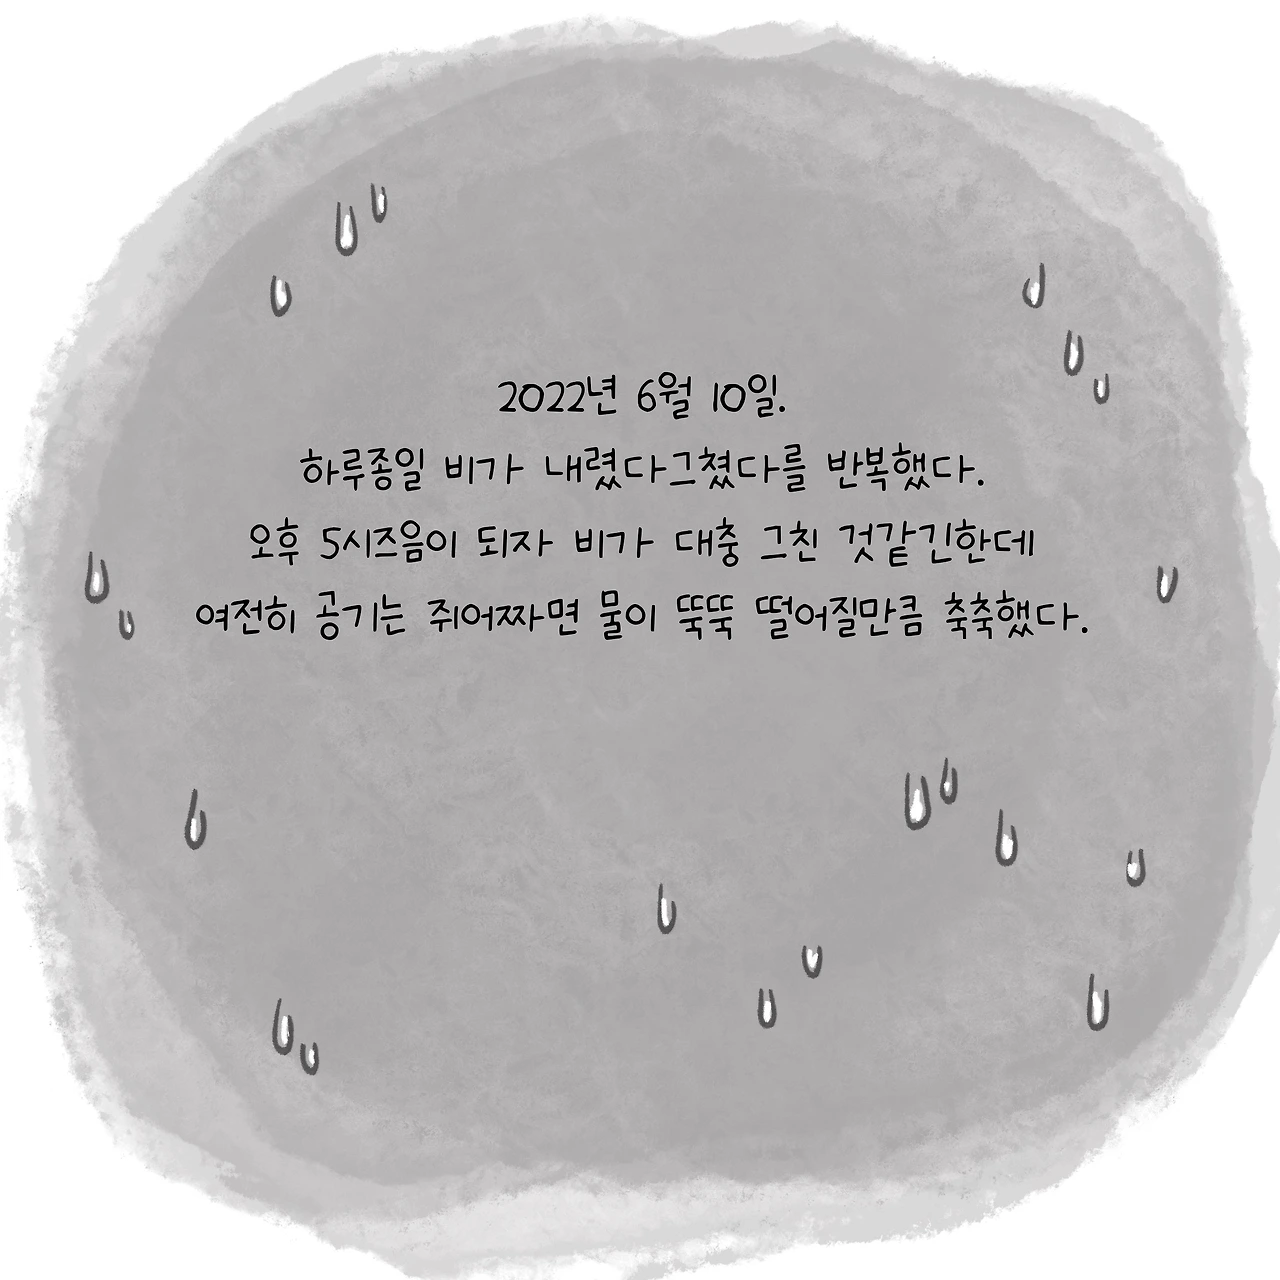 2022년 6월 10일.
하루종일 비가 내렸다그쳤다를 반복했다.
오후 5시즈음이 되자 비가 대충 그친 것같긴한데
여전히 공기는 쥐어짜면 물이 뚝뚝 떨어질만큼 축축했다.